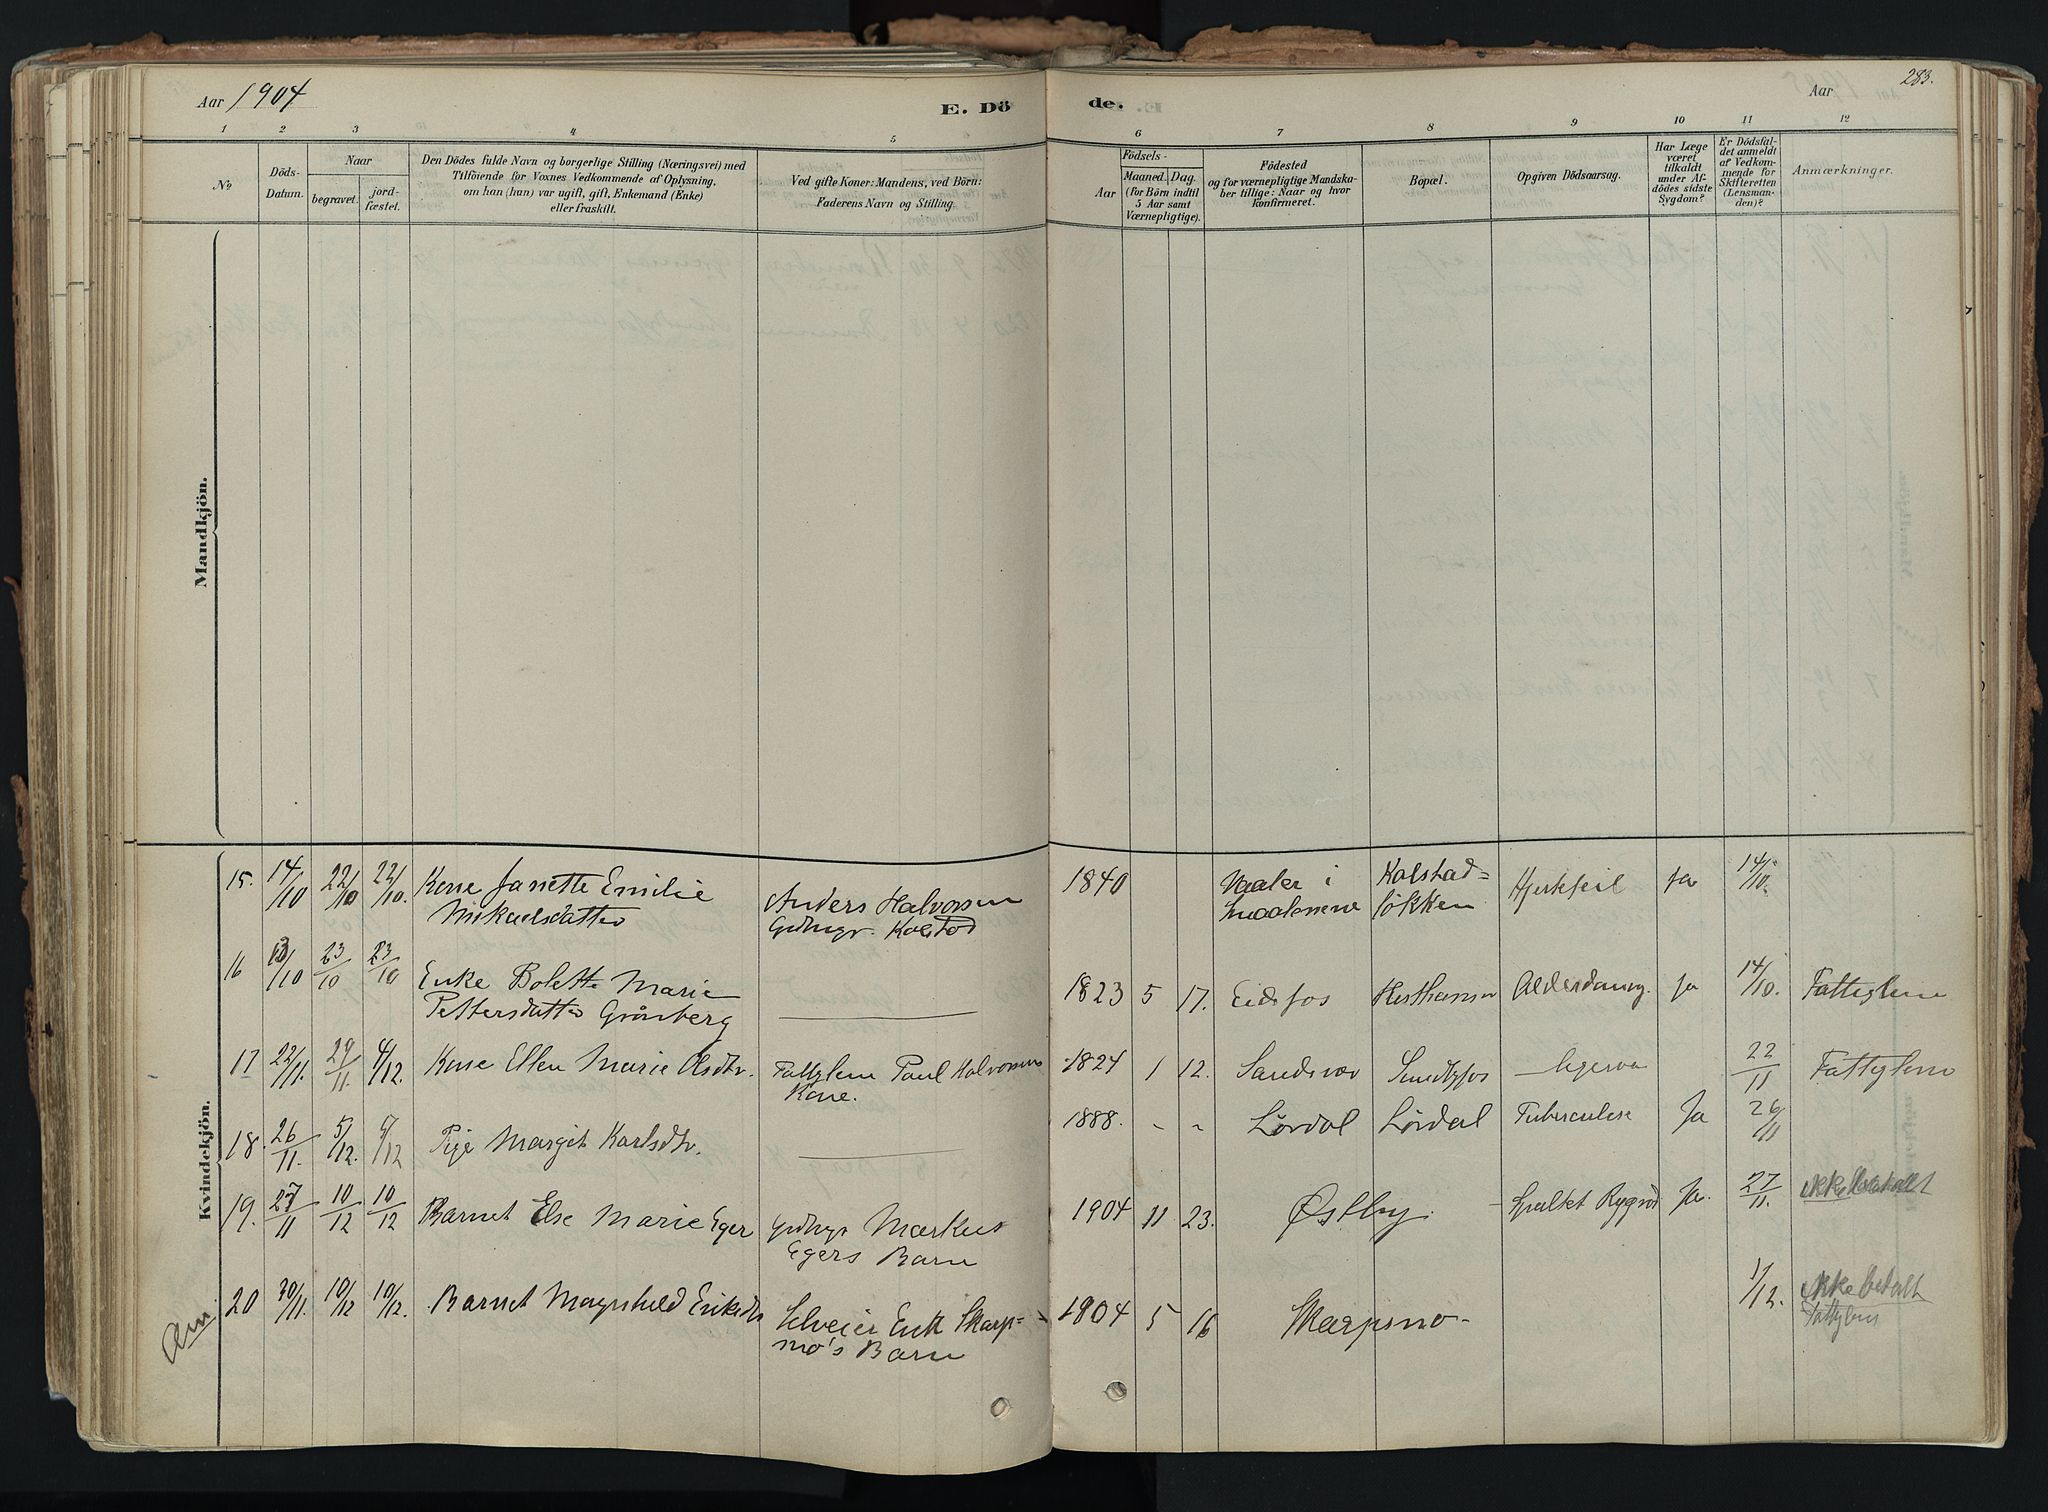 Aar 1904
E. Dö
de.
Aar
283.
1 2 3 4 5 6 7 8 9 10 11 12
No
Döds-
Datum.
Naar
begravet.
jord-
fæstet.
Den Dödes fulde Navn og borgerlige Stilling (Næringsvei) med
Tilföiende for Voxnes Vedkommende af Oplysning,
om han (hun) var ugift, gift, Enkemand (Enke)
eller fraskilt.
Ved gifte Koner: Mandens, ved Börn:
Faderens Navn og Stilling.
Aar
Födsels-
Maaned. Dag.
(for Börn indtil
5 Aar samt
Værnepligtige).
Födested
og for værnepligtige Mandska-
ber tillige: Naar og hvor
konfirmeret.
Bopæl.
Opgiven Dödsaarsag.
Har Læge
været
tilkaldt
under Af-
dödes sidste
Sygdom?
Er Dödsfal-
det anmeldt
af Vedkom-
mende for
Skifteretten
(Lensman-
den)?
Anmærkninger.
Mandkjön.
Kvindekjön.
15. 14/10 22/10 22/10. Kone Janette Emilie Anders Halvorsen 1840 Vaaler i Kolstad= Hjertefeil Ja 14/10.
Mikaelsdatter Gdbrgr. Kolstad Smaalenene løkken
16 13/10 23/10 23/10 Enke Bolette Marie 1823 5 17. Eidsfos Alderdoms. Ja 14/10. Fattiglem
Pettersdatter Grønberg
17 22/11. 29/11 4/12. Kone Ellen Marie Olsdtr. Fattiglem Paul Halvorsens 1824 1 12. Sandsvær Sundbyfos 22/11 Fattiglem
Kone.
18. 26/11. 5/12. 6/12 Pige Margit Karlsdtr. 1888. - - Lørdal Lørdal Tuberculose Ja 26/11
19. 27/11 10/12 10/12 Barnet Else Marie Eger Gdbrgr Markus 1904 11 23. Østby. Spaltet Rygrad Ja. 27/11. ikke betalt
Egers Barn
20 30/11. 10/12 10/12. Barnet Magnhild Eriksdtr Selveier Erik Skarp= 1904 5 16 Skarpsno 1/12. ikke betalt
mo's Barn Fattiglem